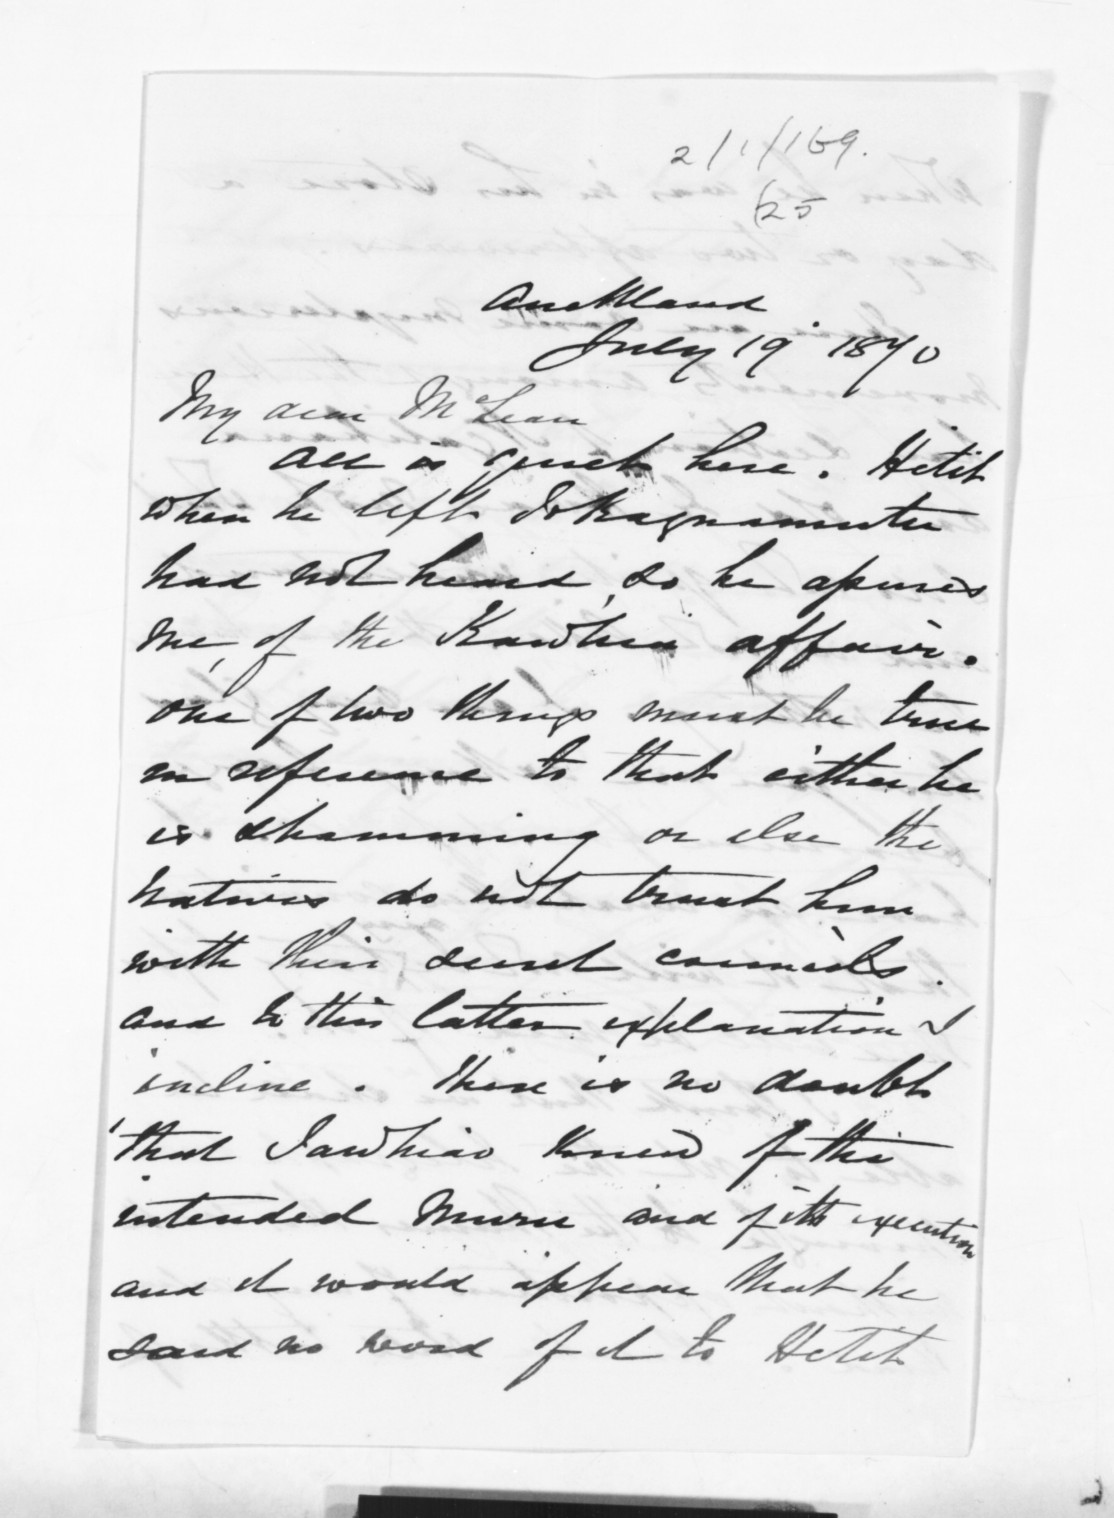 2/1/169.
(25
Auckland
July 19 1870
My dear McLean
All is quiet here. Hetit
when he left Tokagnamutu
had not heard, so he apures
me, of the Kawhia affair.
one of two things must be true
in reference to that either he
is shamming or else the
natives do not trust him
with their secret councils.
and to this latter explanation I
incline. There is no doubt
that Tawhiao knew of this
intended Muru and of its execution
and it would appear that he
said no word of it to Hetit